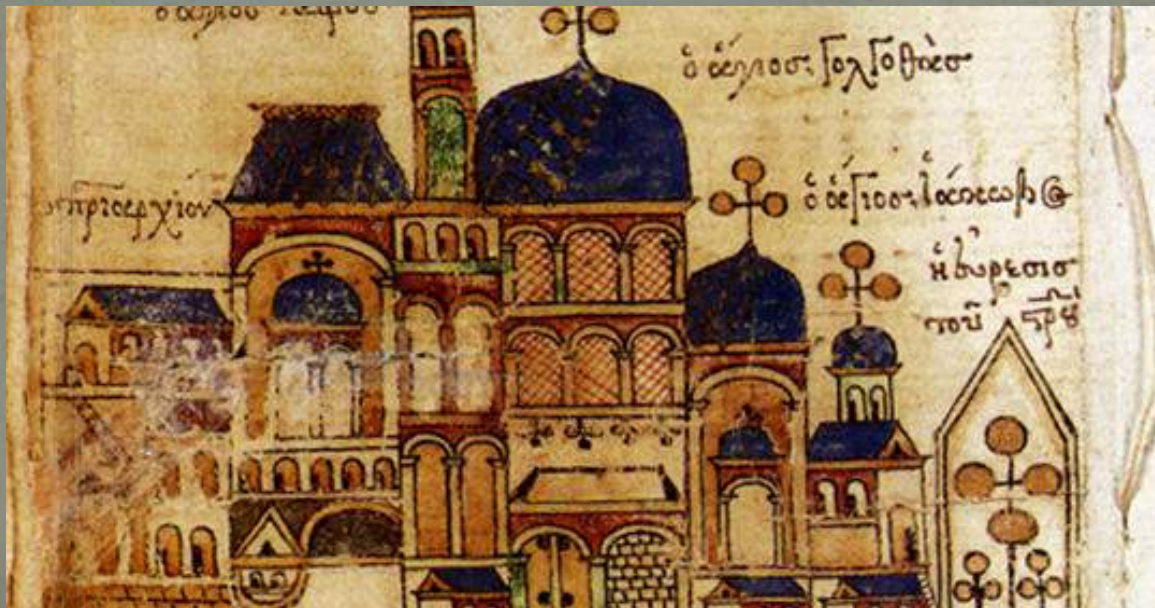 ὁ ἅγιος τάφος
ὁ ἅγιος Γολγοθὰς
πριαρχίον
ὁ ἅγιος Ἰάκωβο
ἡ εὕρεσις
τοῦ στρου